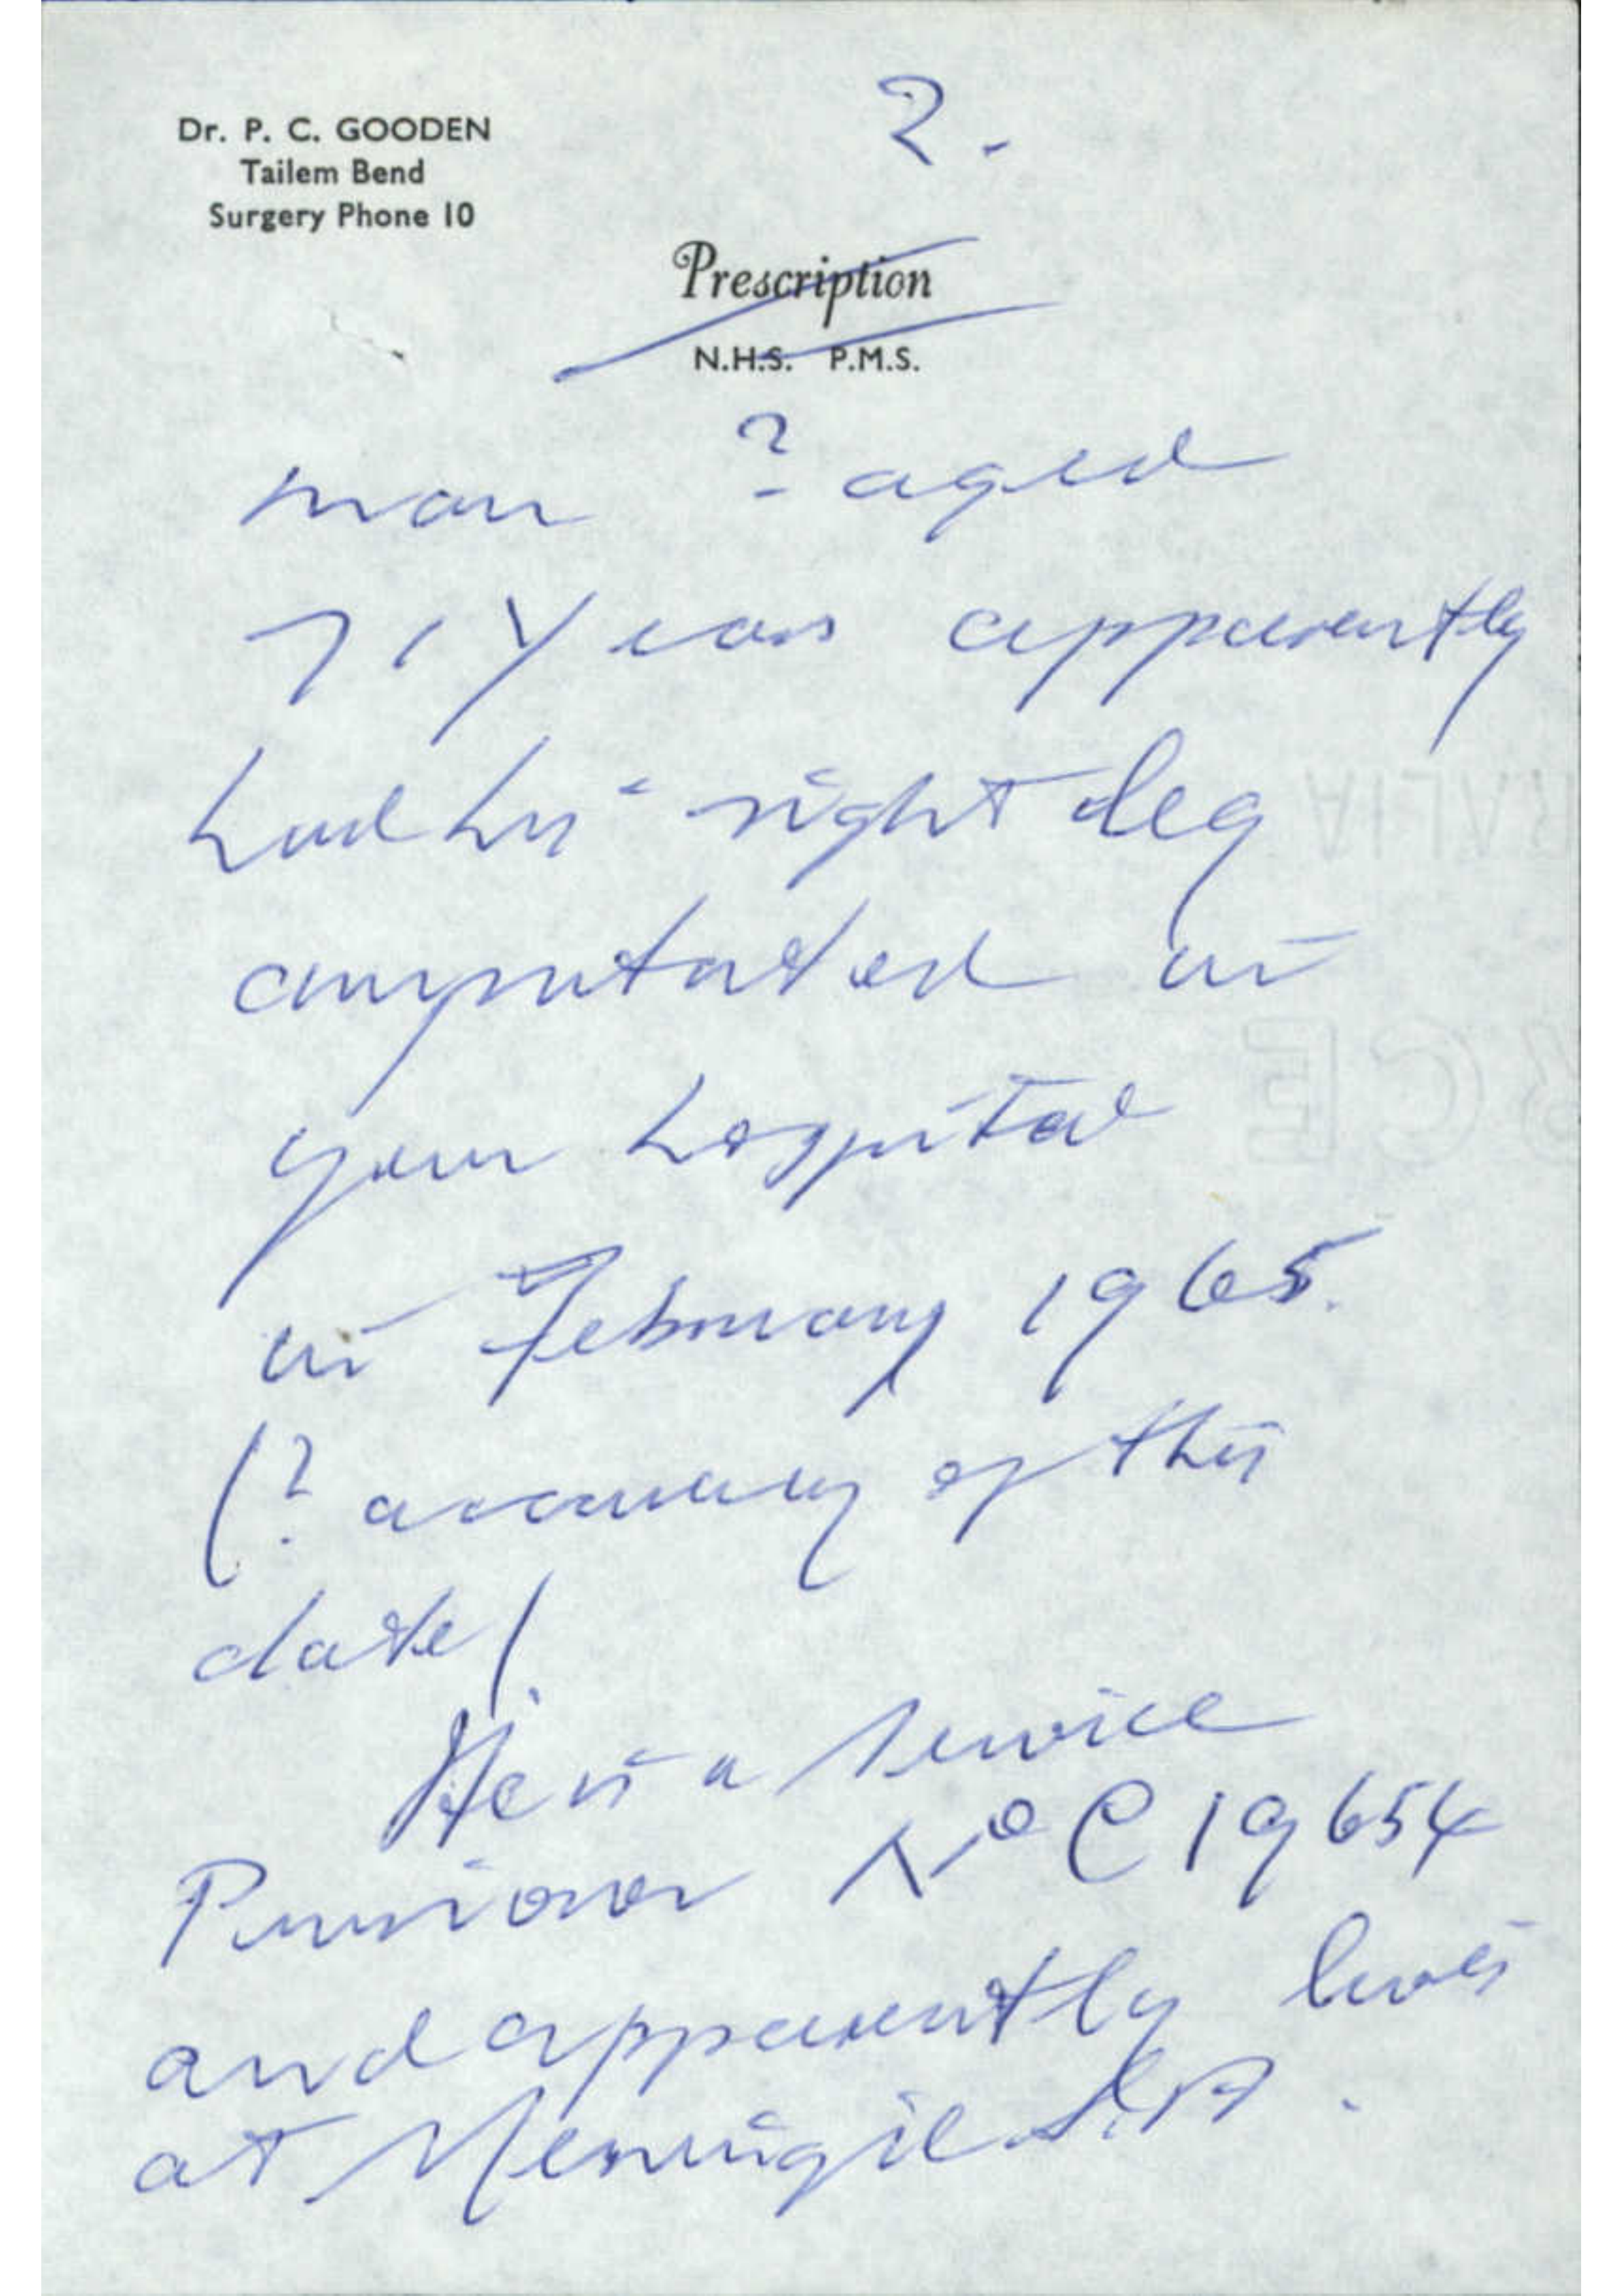 Dr. P. C. GOODEN
Tailem Bend
Surgery Phone 10
2.
Prescription
N.H.S. P.M.S.
man ? aged
71 Years apparently
had his right leg
amputated in
your hospital
in February 1965.
(? accuracy of this
date).
He is a Service
Pensioner No C19654
and apparently lives
at Meningie S.A.